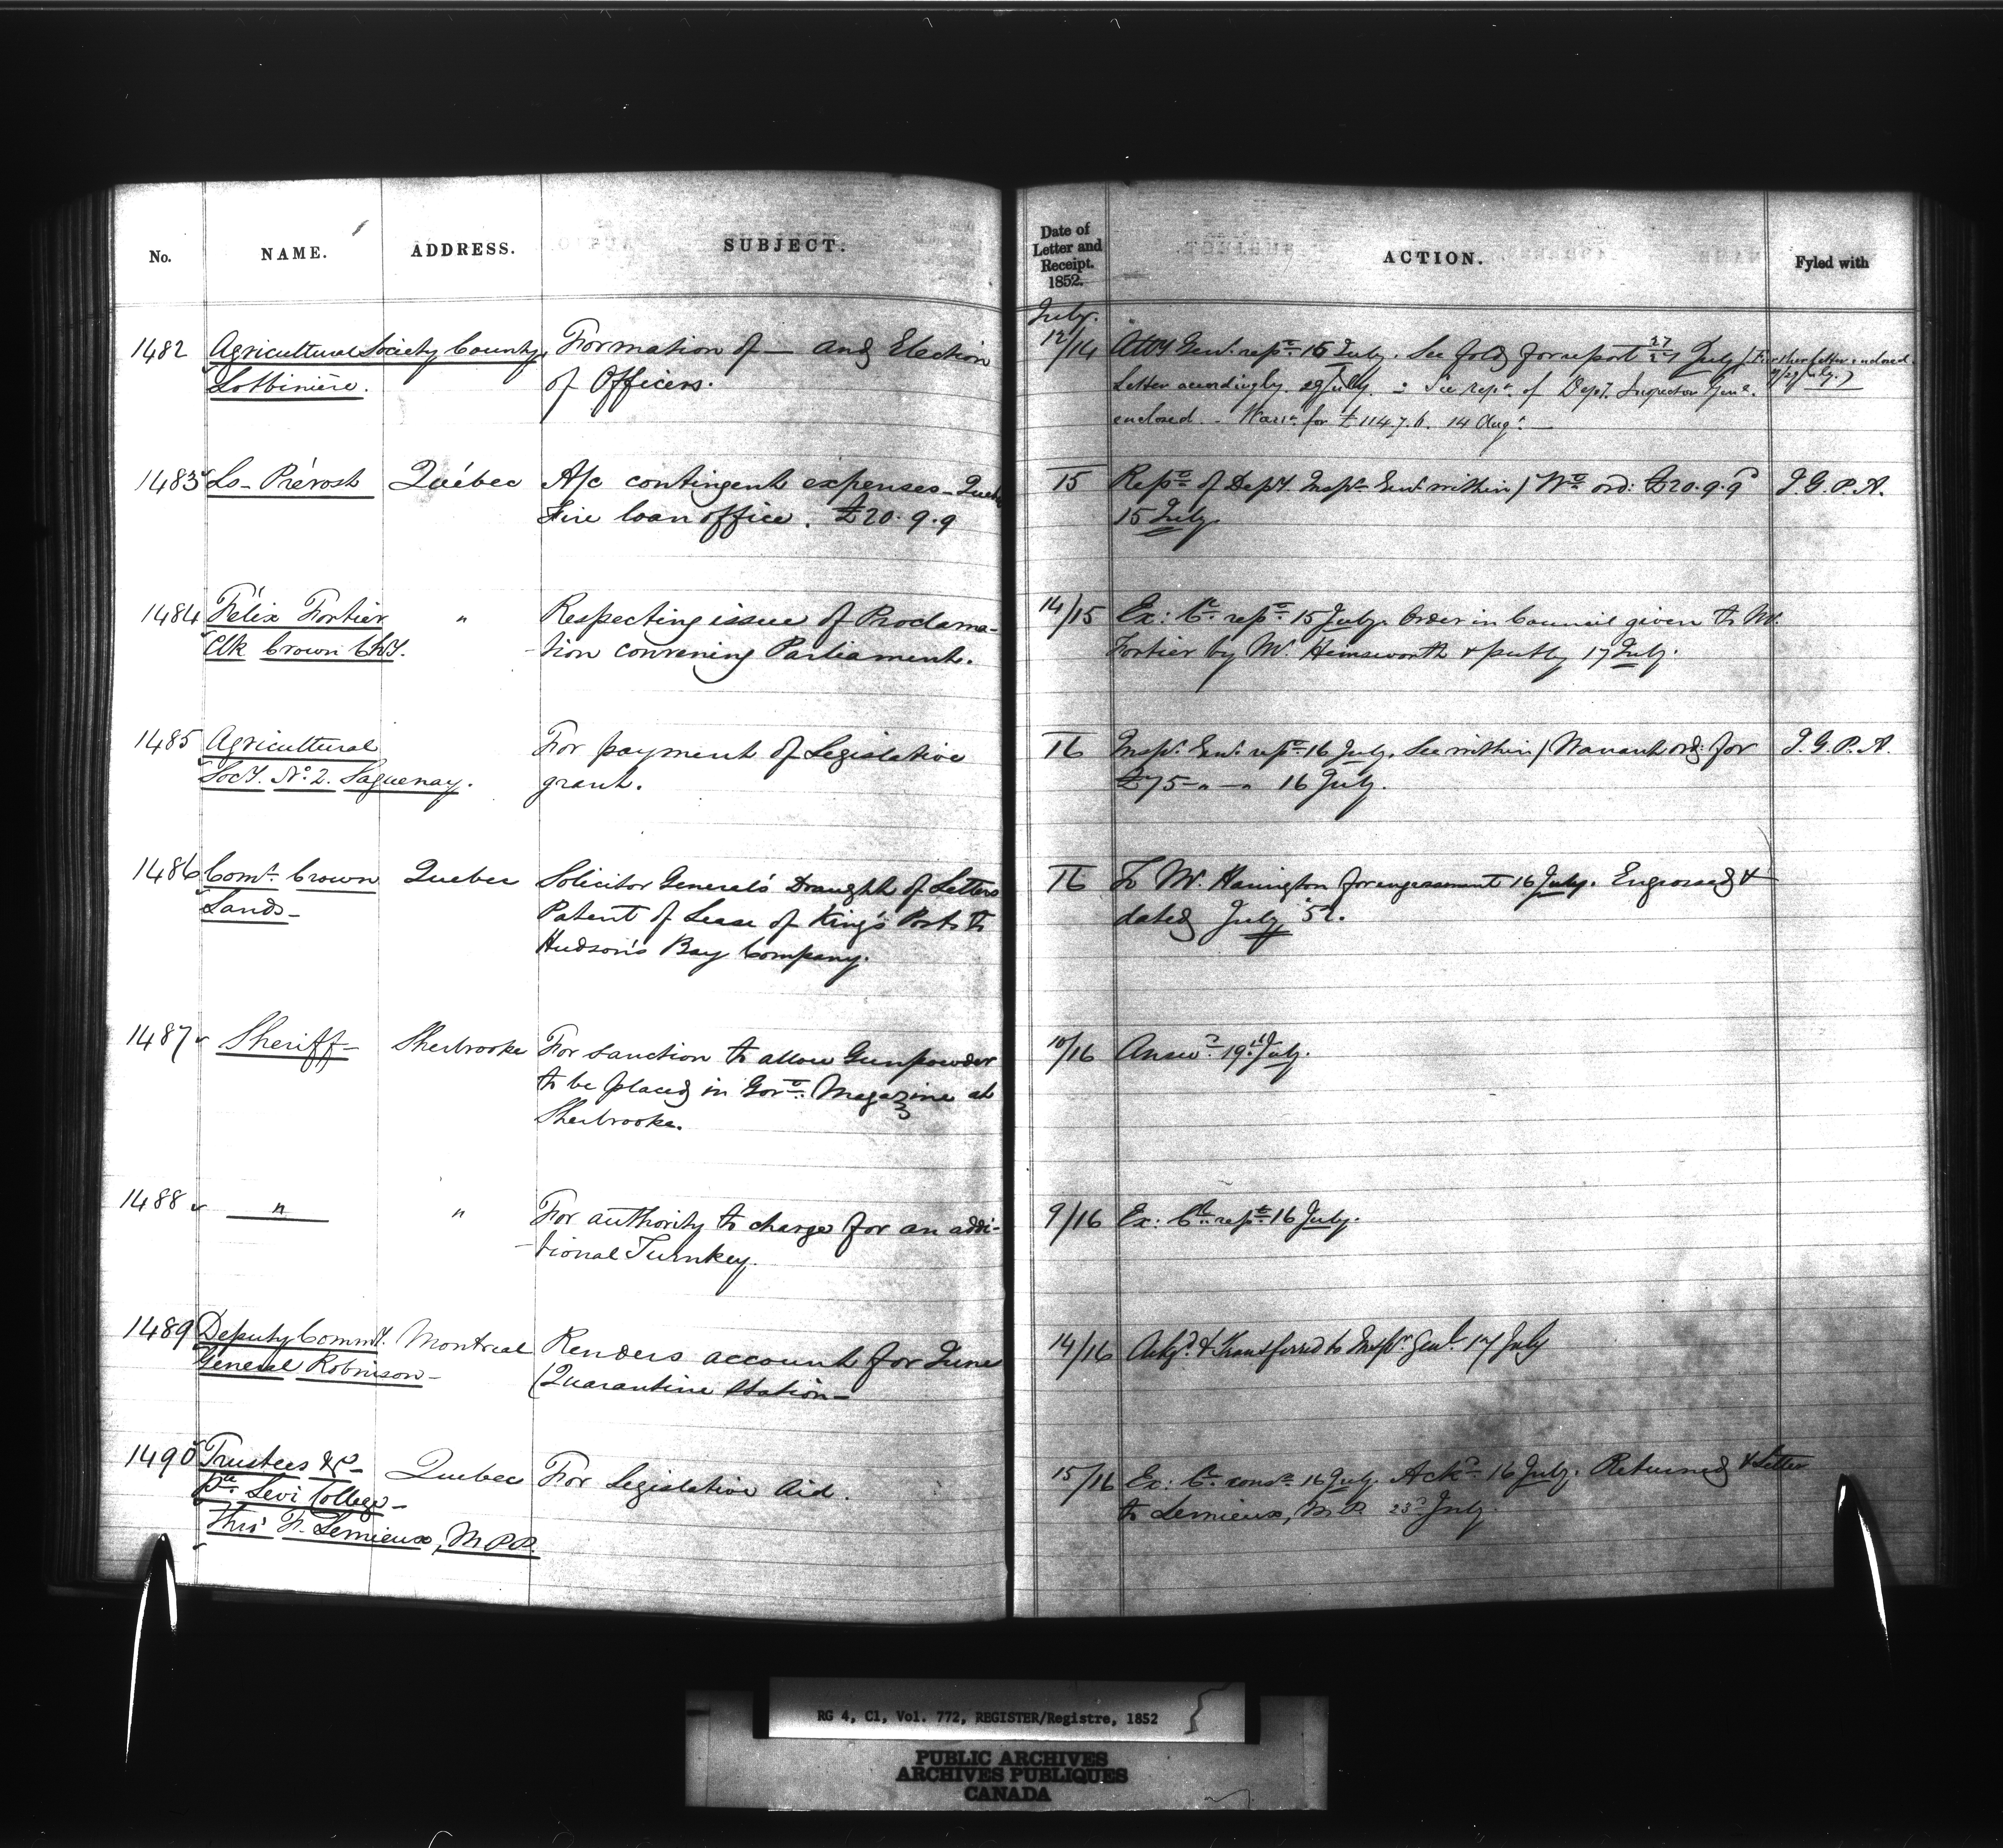 No. NAME. ADDRESS. SUBJECT.
1482 Agricultural Society County Formation of — and Election
Lotbinière. of Officers.
1483 Ls. Prévost Québec A/c contingent expenses – Quebec
Fire loan office. £20.9.9
1484 Félix Fortier " Respecting issue of Proclama-
Clk Crown Chy. -tion convening Parliament.
1485 Agricultural For payment of Legislative
Socy. No. 2. Saguenay. grant.
1486 Comr. Crown Quebec Solicitor General's Draught of Letters
Lands – Patent of Lease of King's Posts to
Hudson's Bay Company.
1487 Sheriff – Sherbrooke For sanction to allow Gunpowder
to be placed in Govt. Magazine at
Sherbrooke.
1488 " " For authority to charge for an addi-
-tional Turnkey.
1489 Deputy Commy. Montreal Renders account for June
General Robinson – (Quarantine Station –
1490 Trustees &c – Quebec For Legislative Aid.
Pte. Levi College –
Thro' F. Lemieux, M.P.P.
Date of
Letter and
Receipt.
1852. ACTION. Fyled with
July.
12/14 Atty Genl. repd. 15 July. See fold for report 27 July (Further letter enclosed
Letter accordingly 29 July. – See rept. of Depy. Inspector Genl.
enclosed. – Warrt. for £114.7.6. 14 Augt. —
15 Repd. of Depy. Inspr. Genl. within / Wt. ord: £20.9.9 I.G.P.A.
15 July.
14/15 Ex: Cl. repd. 15 July. Order in Council given to Mr.
Fortier by Mr. Himsworth & put by 17 July.
16 Inspr. Genl. repd. 16 July. See within / Warrant ord: for I.G.P.A.
£75 – " – " 16 July.
16 To Mr. Harrington for engrossment 16 July. Engrossed &
dated July '52.
10/16 Answd. 19th July.
9/16 Ex: Cl. repd. 16 July.
14/16 Ackgd. & transferred to Inspr. Genl. 17 July
15/16 Ex: Cl. consd. 16 July. Ackd. 16 July. Returned & Letter
to Lemieux, M.P. 23d July.
RG 4, C1, Vol. 772, REGISTER/Registre, 1852
PUBLIC ARCHIVES
ARCHIVES PUBLIQUES
CANADA